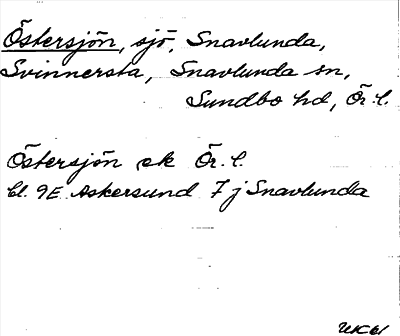 Östersjön, sjö, Snavlunda,
Svinnersta, Snavlunda sn,
Sundbo hd, Ör. l.
Östersjön ek Ör. l.
bl. 9E Askersund 7 j Snavlunda
UK 61